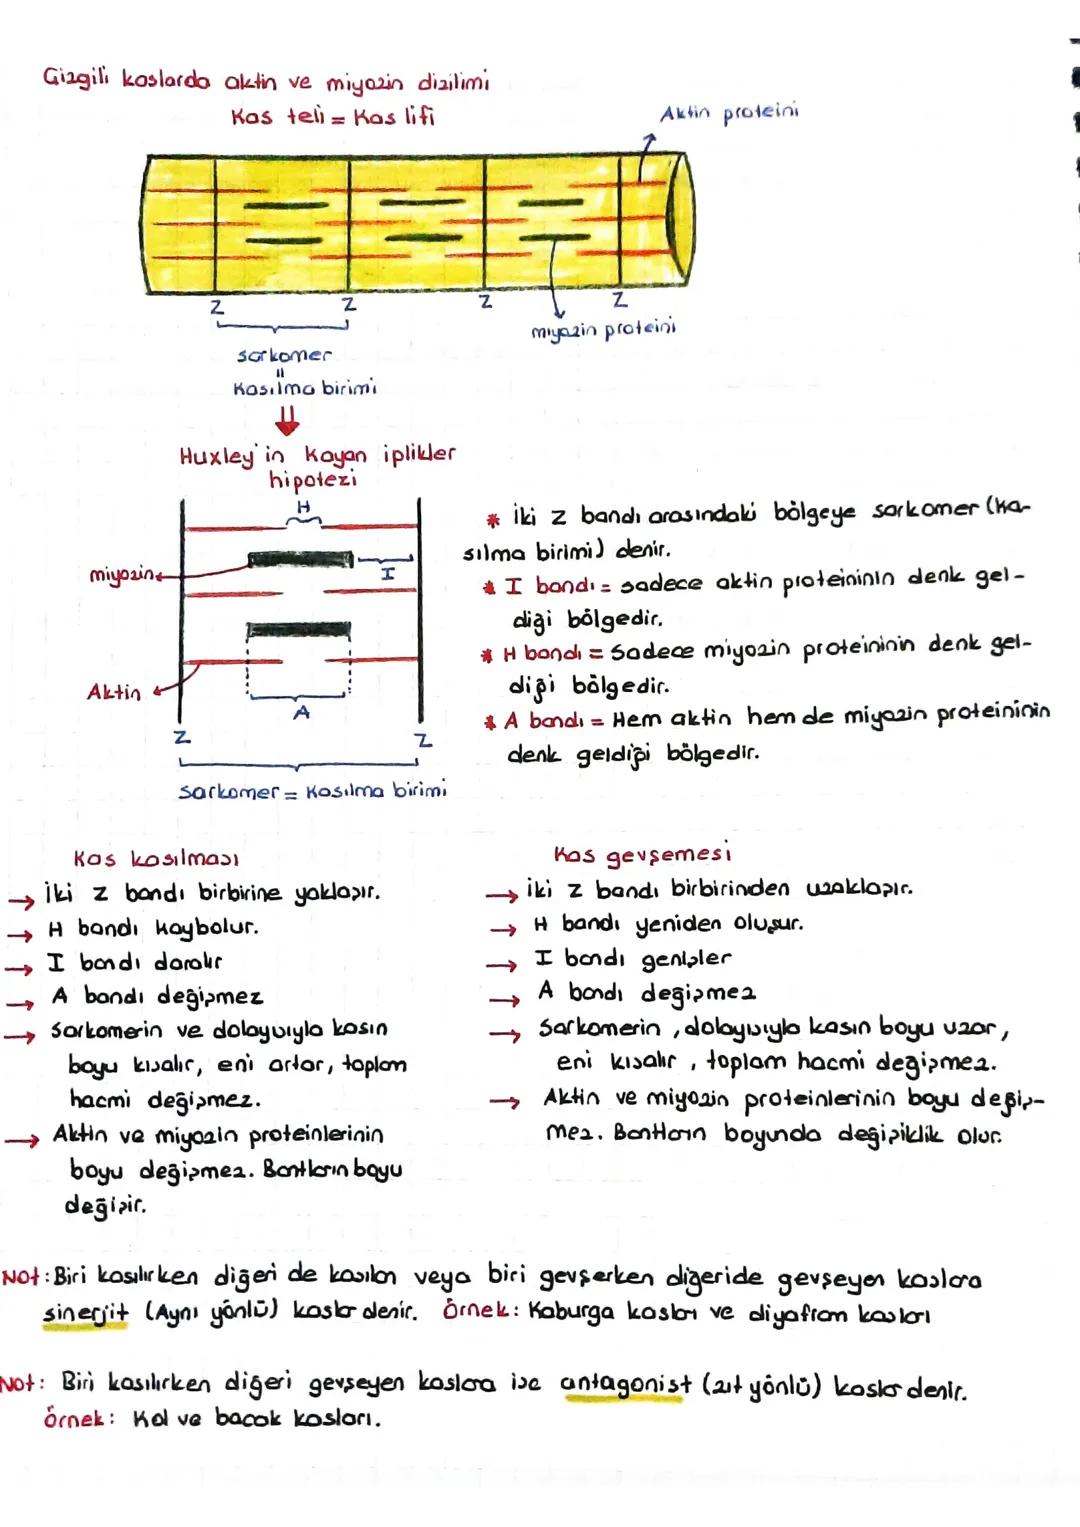 Çizgili kaslarda aktin ve miyozin dizilimi
Kas teli = Kas lifi
Aktin proteini
Z
Z
Z
Z
miyozin proteini
sarkomer
=
Kasılma birimi
Huxley'in Kayan iplikler
hipotezi
H
miyozin
I
Aktin
A
Z
Z
Sarkomer = Kasılma birimi
* İki Z bandı arasındaki bölgeye sarkomer (ka-
sılma birimi) denir.
* I bandı = sadece aktin proteininin denk gel-
diği bölgedir.
* H bandı = Sadece miyozin proteininin denk gel-
diği bölgedir.
* A bandı = Hem aktin hem de miyozin proteininin
denk geldiği bölgedir.
Kas kasılması
→ İki Z bandı birbirine yaklaşır.
→ H bandı kaybolur.
→ I bandı daralır
→ A bandı değişmez
→ Sarkomerin ve dolayısıyla kasın
boyu kısalır, eni artar, toplam
hacmi değişmez.
→ Aktin ve miyozin proteinlerinin
boyu değişmez. Bantların boyu
değişir.
Kas gevşemesi
→ İki Z bandı birbirinden uzaklaşır.
→ H bandı yeniden oluşur.
→ I bandı genişler
→ A bandı değişmez
→ Sarkomerin, dolayısıyla kasın boyu uzar,
eni kısalır, toplam hacmi değişmez.
→ Aktin ve miyozin proteinlerinin boyu değiş-
mez. Bantların boyunda değişiklik olur.
Not: Biri kasılırken diğeri de kasılan veya biri gevşerken diğeride gevşeyen kaslara
sinerjit (Aynı yönlü) kaslar denir. Örnek: Kaburga kasları ve diyafram kasları
Not: Biri kasılırken diğeri gevşeyen kaslara ise antagonist (zıt yönlü) kaslar denir.
Örnek: Kol ve bacak kasları.